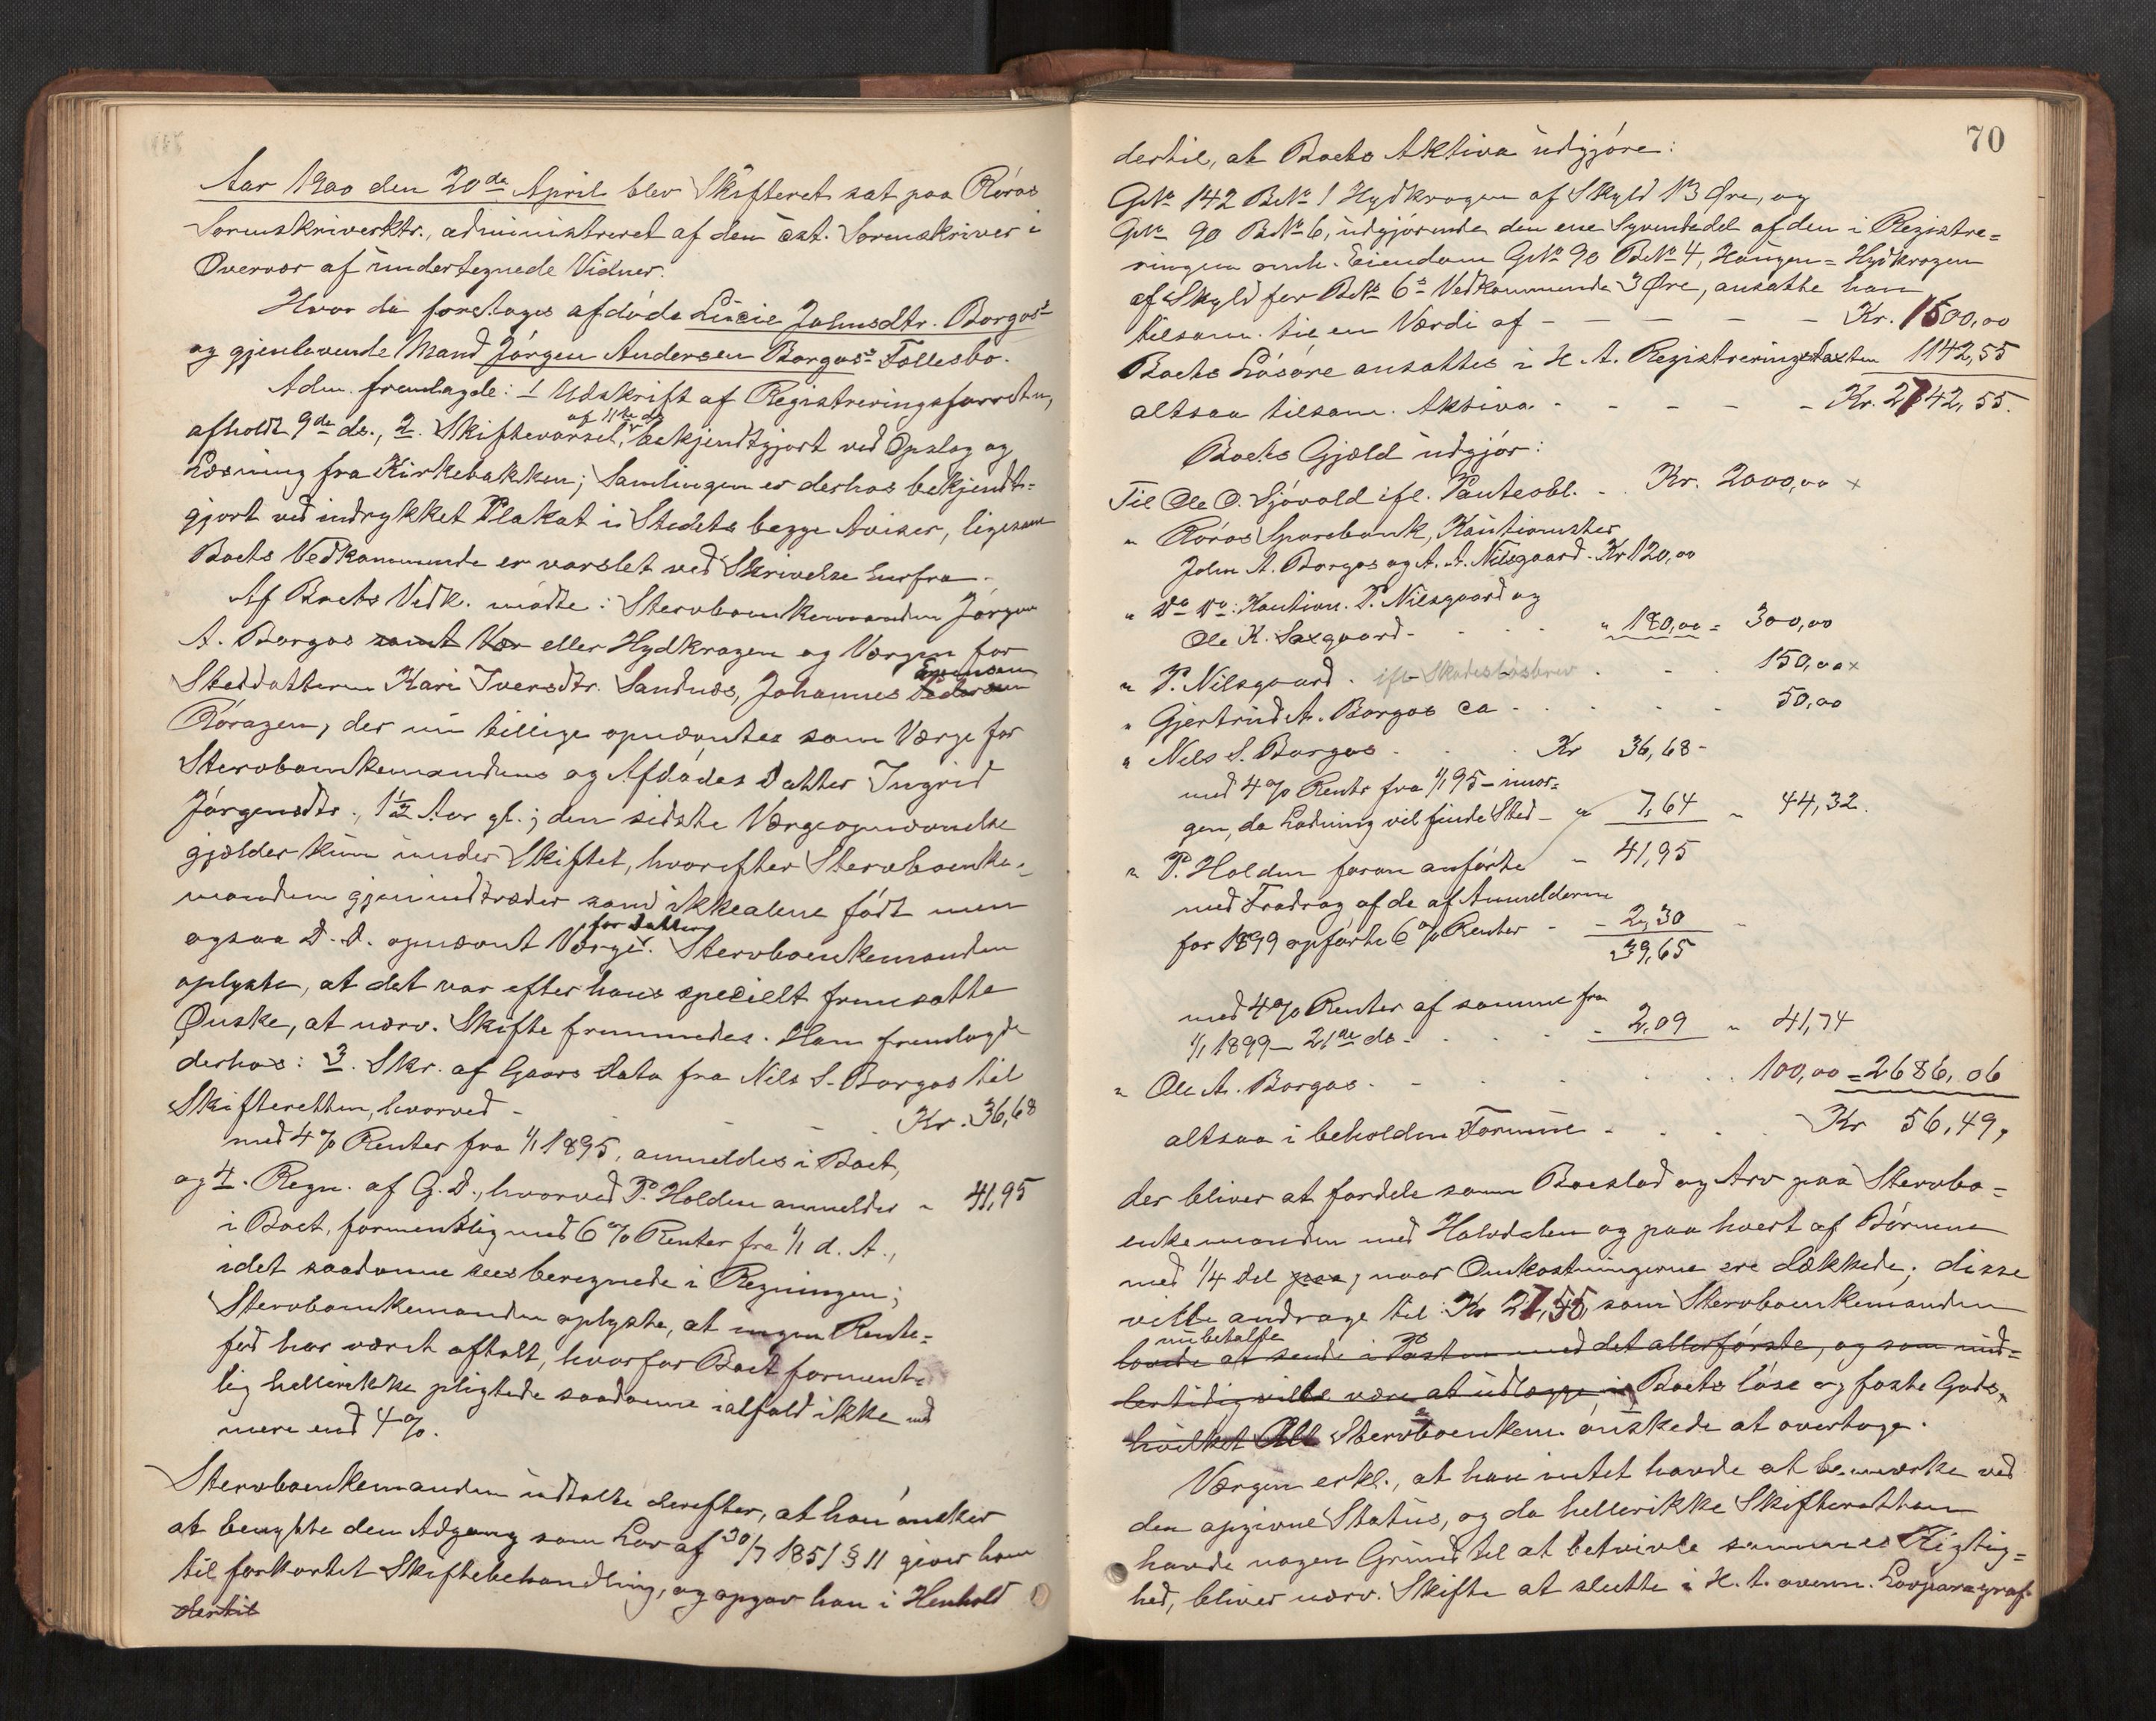 Aar 1900 den 20de April blev Skifteret sat paa Röros
Sorenskriverktr., administreret af den cst. Sorenskriver i
Overvær af undertegnede Vidner.
Hvor da foretoges afdöde Lucie Johnsdtr. Borgos's
og gjenlevende Mand Jörgen Andersen Borgos's Fællesbo.
Adm. fremlagde: 1 Udskrift af Registreringsforretn,
afholdt 9de ds., 2. Skiftevarsel, af 11te ds bekjendtgjort ved Opslag og
Læsning fra Kirkebakken; Samlingen er derhos bekjendt-
gjort ved indrykket Plakat i Stedets begge Aviser, ligesom
Boets Vedkommende er varslet ved Skrivelse herfra.
Af Boets Vedk. mödte: Stervboenkemanden Jörgen
A. Borgos samt Vær eller Hydkrogen og Værgen for
Steddatteren Kari Iversdtr. Sandnæs, Johannes Evensen Pedersen
Röragen, der nu tillige opnævntes som Værge for
Stervboenkemandens og Afdödes Datter Ingrid
Jörgensdtr., 1½ Aar gl.; den sidste Værgeopnævnelse
gjælder kun under Skiftet, hvorefter Stervboenke-
manden gjenindtræder som ikkealene födt men
ogsaa D. D. opnævnt Værge for Datteren. Stervboenkemanden
oplyste, at det var efter hans specielt fremsatte
Ønske, at nærv. Skifte fremmedes. Han fremlagde
derhos: 3. Skr. af Gaars Dato fra Nils S. Borgos til
Skifteretten, hvorved - - - Kr. 36,68
med 4% Renter fra 1/1 1895, anmeldes i Boet,
og 4. Regn. af G. D., hvorved P. Holden anmelder " 41,95
i Boet, formentlig med 6% Renter fra 1/1 d. A.,
idet saadanne sees beregnede i Regningen;
Stervboenkemanden oplyste, at ingen Rente-
fod har været aftalt, hvorfor Boet forment-
lig hellerikke pligtede saadanne ialfald ikke med
mere end 4%.
Stervboenkemanden udtalte derefter, at han önsker
at benytte den Adgang som Lov af 30/7 1851 § 11 giver ham
til forkortet Skiftebehandling, og opgav han i Henhold
dertil
70
dertil, at Boets Aktiva udgjöre:
GNo 142 BNo 1 Hydkrogen af Skyld 13 Øre, og
GNo 90 BNo 6, udgjörende den ene Syvendedel af den i Registre-
ringen omh. Eiendom GNo 90 BNo 4, Haugen-Hydkrogen
af Skyld for BNo 6s Vedkommende 3 Øre, ansatte han
tilsam. til en Værdi af - - - - - Kr. 1500,00
Boets Lösöre ansattes i H. t. Registreringstaxten 1142,55
altsaa tilsam. Aktiva - - - - - Kr. 2742,55.
Boets Gjæld udgjör:
Til Ole O. Sjövold ifl. Panteobl. - Kr. 2000,00 x
" Röros Sparebank, Kautionister
John A. Borgos og A. A. Nilsgaard - Kr 120,00
" Do Do: Kaution. P. Nilsgaard og
Ole K. Saxgaard - . . " 180,00 = 300,00
" P. Nilsgaard . ifl Skadeslösbrev . - . 150,00 x
" Gjertrud A. Borgos ca - . . . - 50,00
" Nils S. Borgos . . Kr 36,68 -
med 4% Rente fra 1/1 95 - imor-
gen, da Lodning vil finde Sted - " 7,64 " 44,32.
" P. Holden foran anförte " 41,95
med Fradrag af de af Anmelderne
for 1899 opförte 6% Renter - - 2,30
39,65
med 4% Renter af samme fra
1/1 1899 - 21de ds - . . . - 2,09 " 41,74
" Ole A. Borgos - - . . . . 100,00 = 2686,06
altsaa i beholden Formue - . . . Kr 56,49,
der bliver at fordele som Boeslod og Arv paa Stervbo-
enkemanden med Halvdelen og paa hvert af Börnene
med 1/4 Del paa, naar Omkostningerne ere dækkede; disse
ville andrage til: Kr 27,55, som Stervboenkemanden
nu betalte
lovede at sende i Posten med det allerförste, og som mid-
lertidig ville være at udlægge i Boets löse og faste Gods,
hvilket Alt Stervboenkem. önskede at overtage.
Værgen erkl., at han intet havde at bemærke ved
den opgivne Status, og da hellerikke Skifteretten
havde nogen Grund til at betvivle sammes Rigtig-
hed, bliver nærv. Skifte at slutte i H. t. ovenn. Lovparagraf.